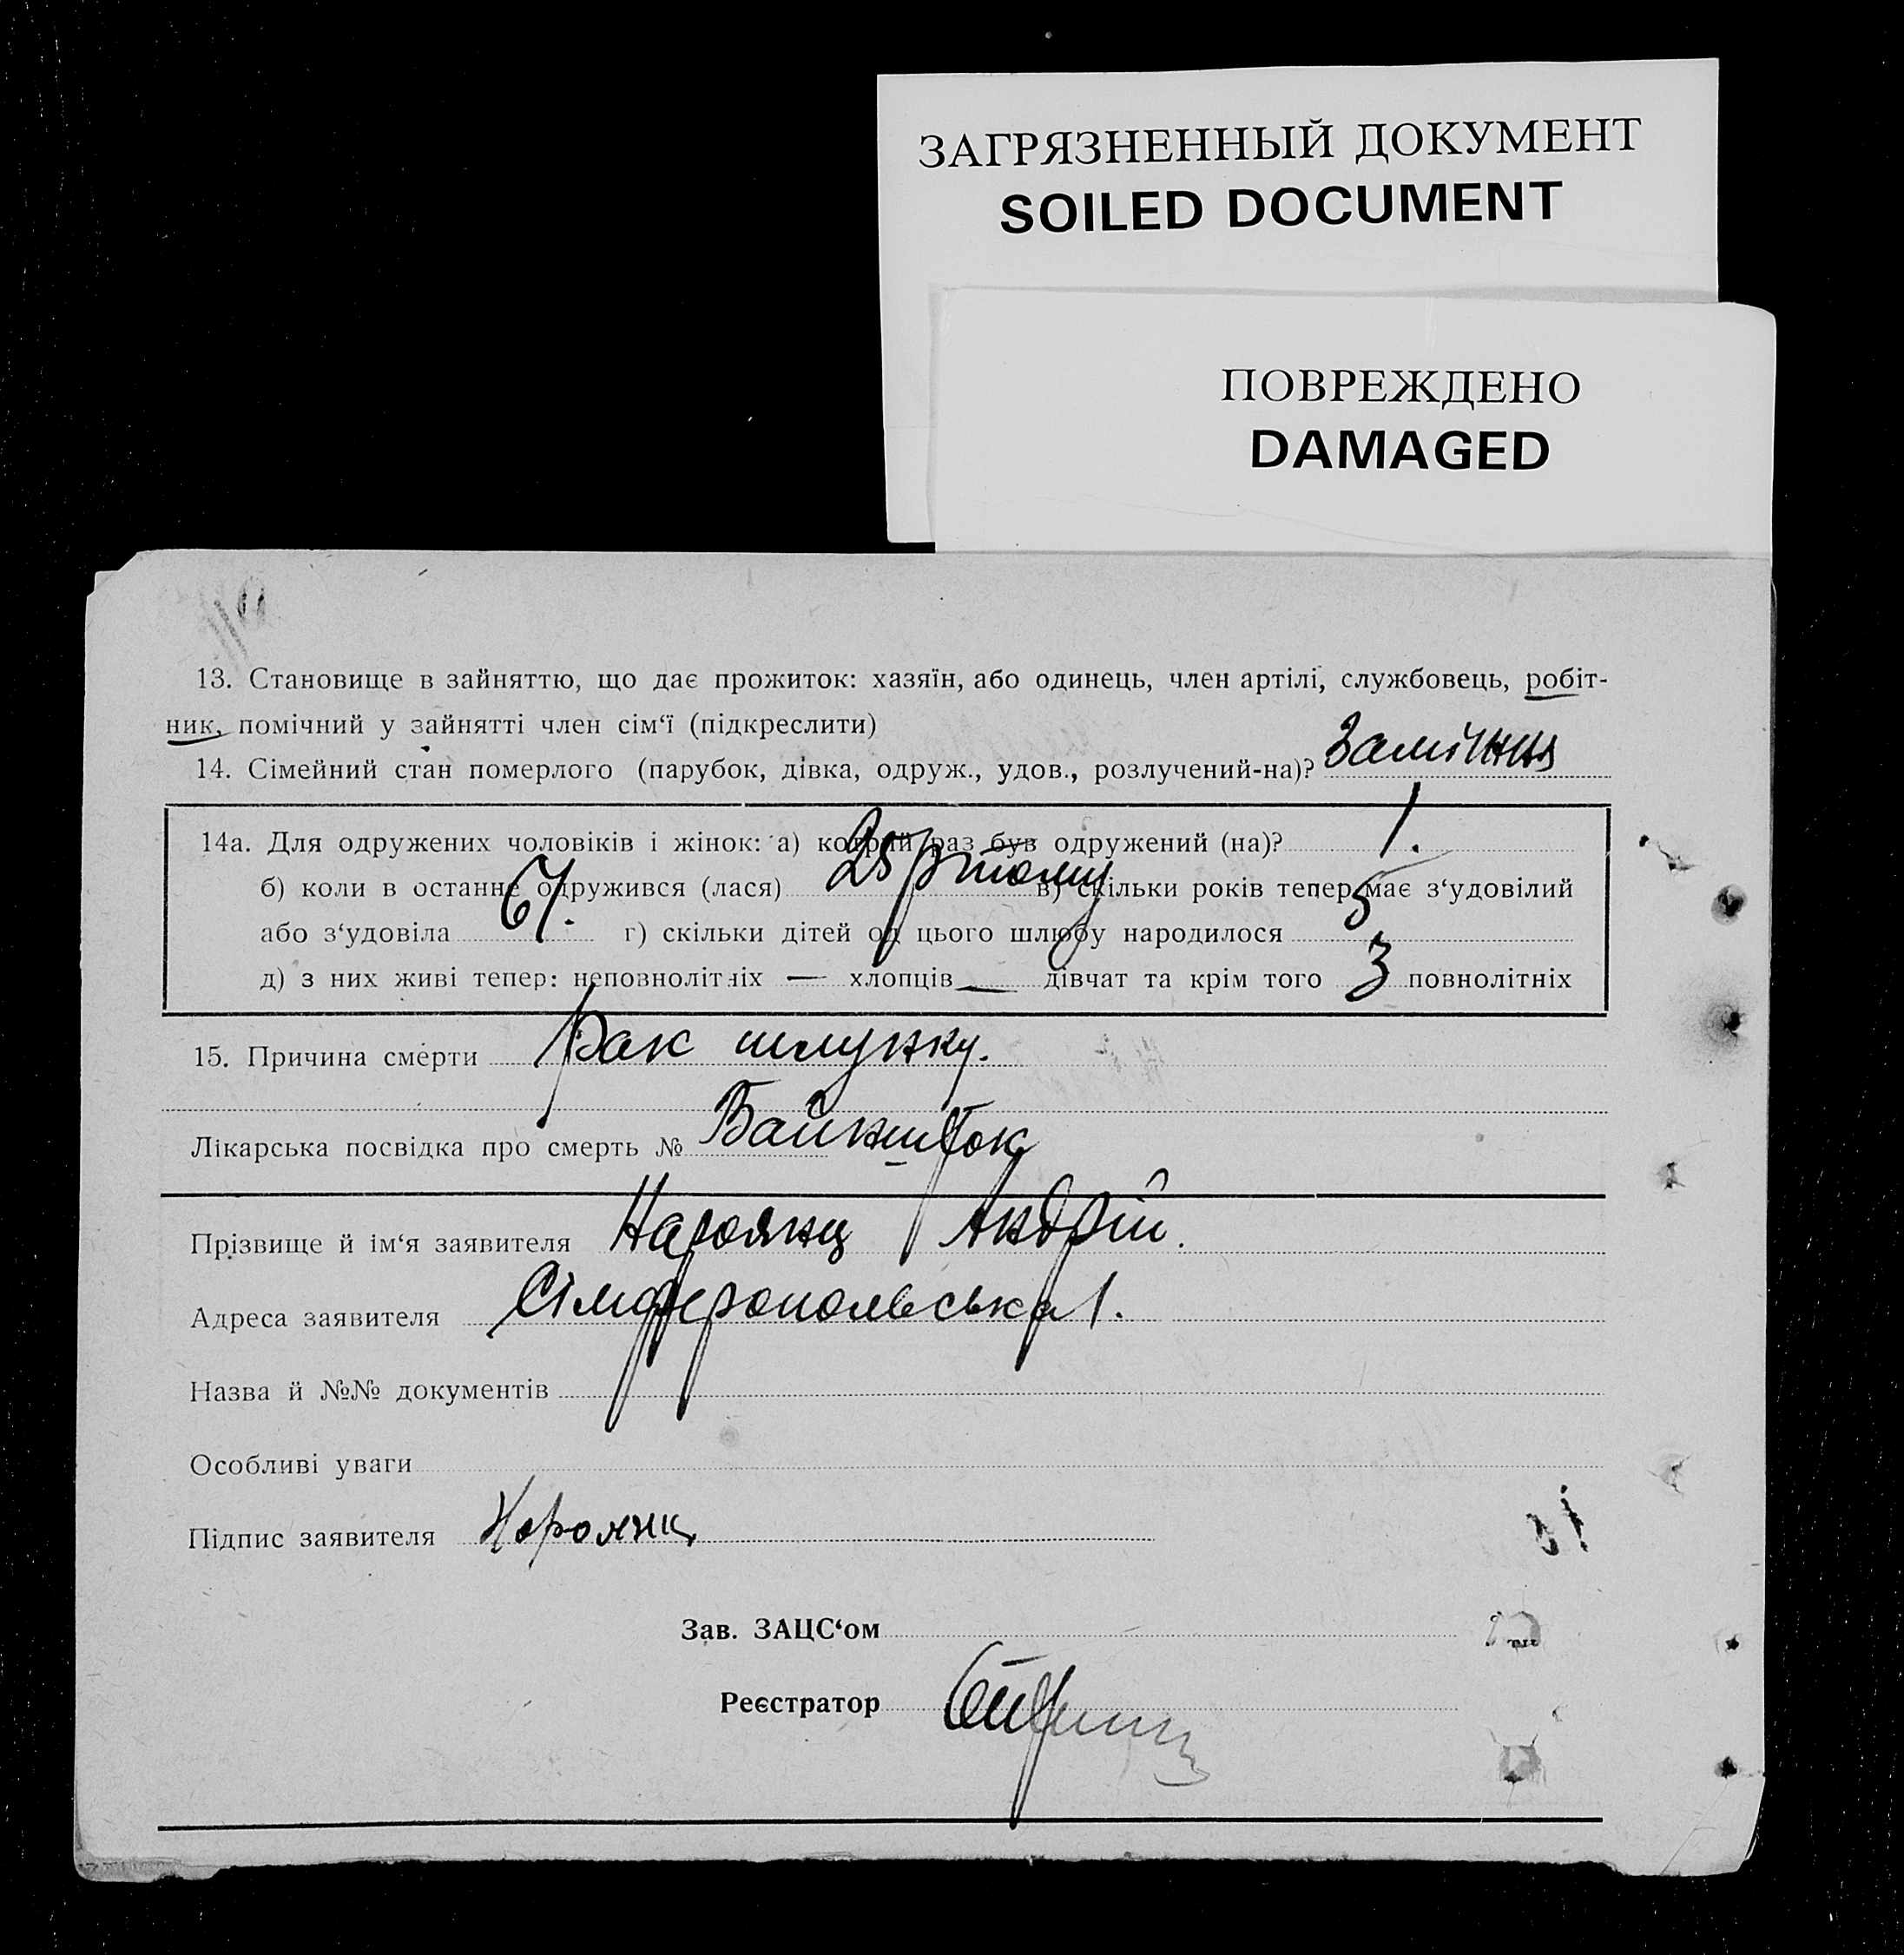 ЗАГРЯЗНЕННЫЙ ДОКУМЕНТ
SOILED DOCUMENT
ПОВРЕЖДЕНО
DAMAGED
13. Становище в зайняттю, що дає прожиток: хазяїн, або одинець, член артілі, службовець, робіт-
ник, помічний у зайнятті член сім‘ї (підкреслити)
14. Сімейний стан померлого (парубок, дівка, одруж., удов., розлучений-на)? Замішня
14а. Для одружених чоловіків і жінок: а) котрий раз був одружений (на)? 1.
б) коли в останнє одружився (лася) 25 р тому в) скільки років тепер має з‘удовілий
або з‘удовіла 67. г) скільки дітей од цього шлюбу народилося 5
д) з них живі тепер: неповнолітніх — хлопців — дівчат та крім того 3 повнолітніх
15. Причина смерти Рак шлунку.
Лікарська посвідка про смерть №
Прізвище й ім‘я заявителя Андрій.
Адреса заявителя Сімферопольська 1.
Назва й №№ документів
Особливі уваги
Підпис заявителя
Зав. ЗАЦС‘ом
Реєстратор